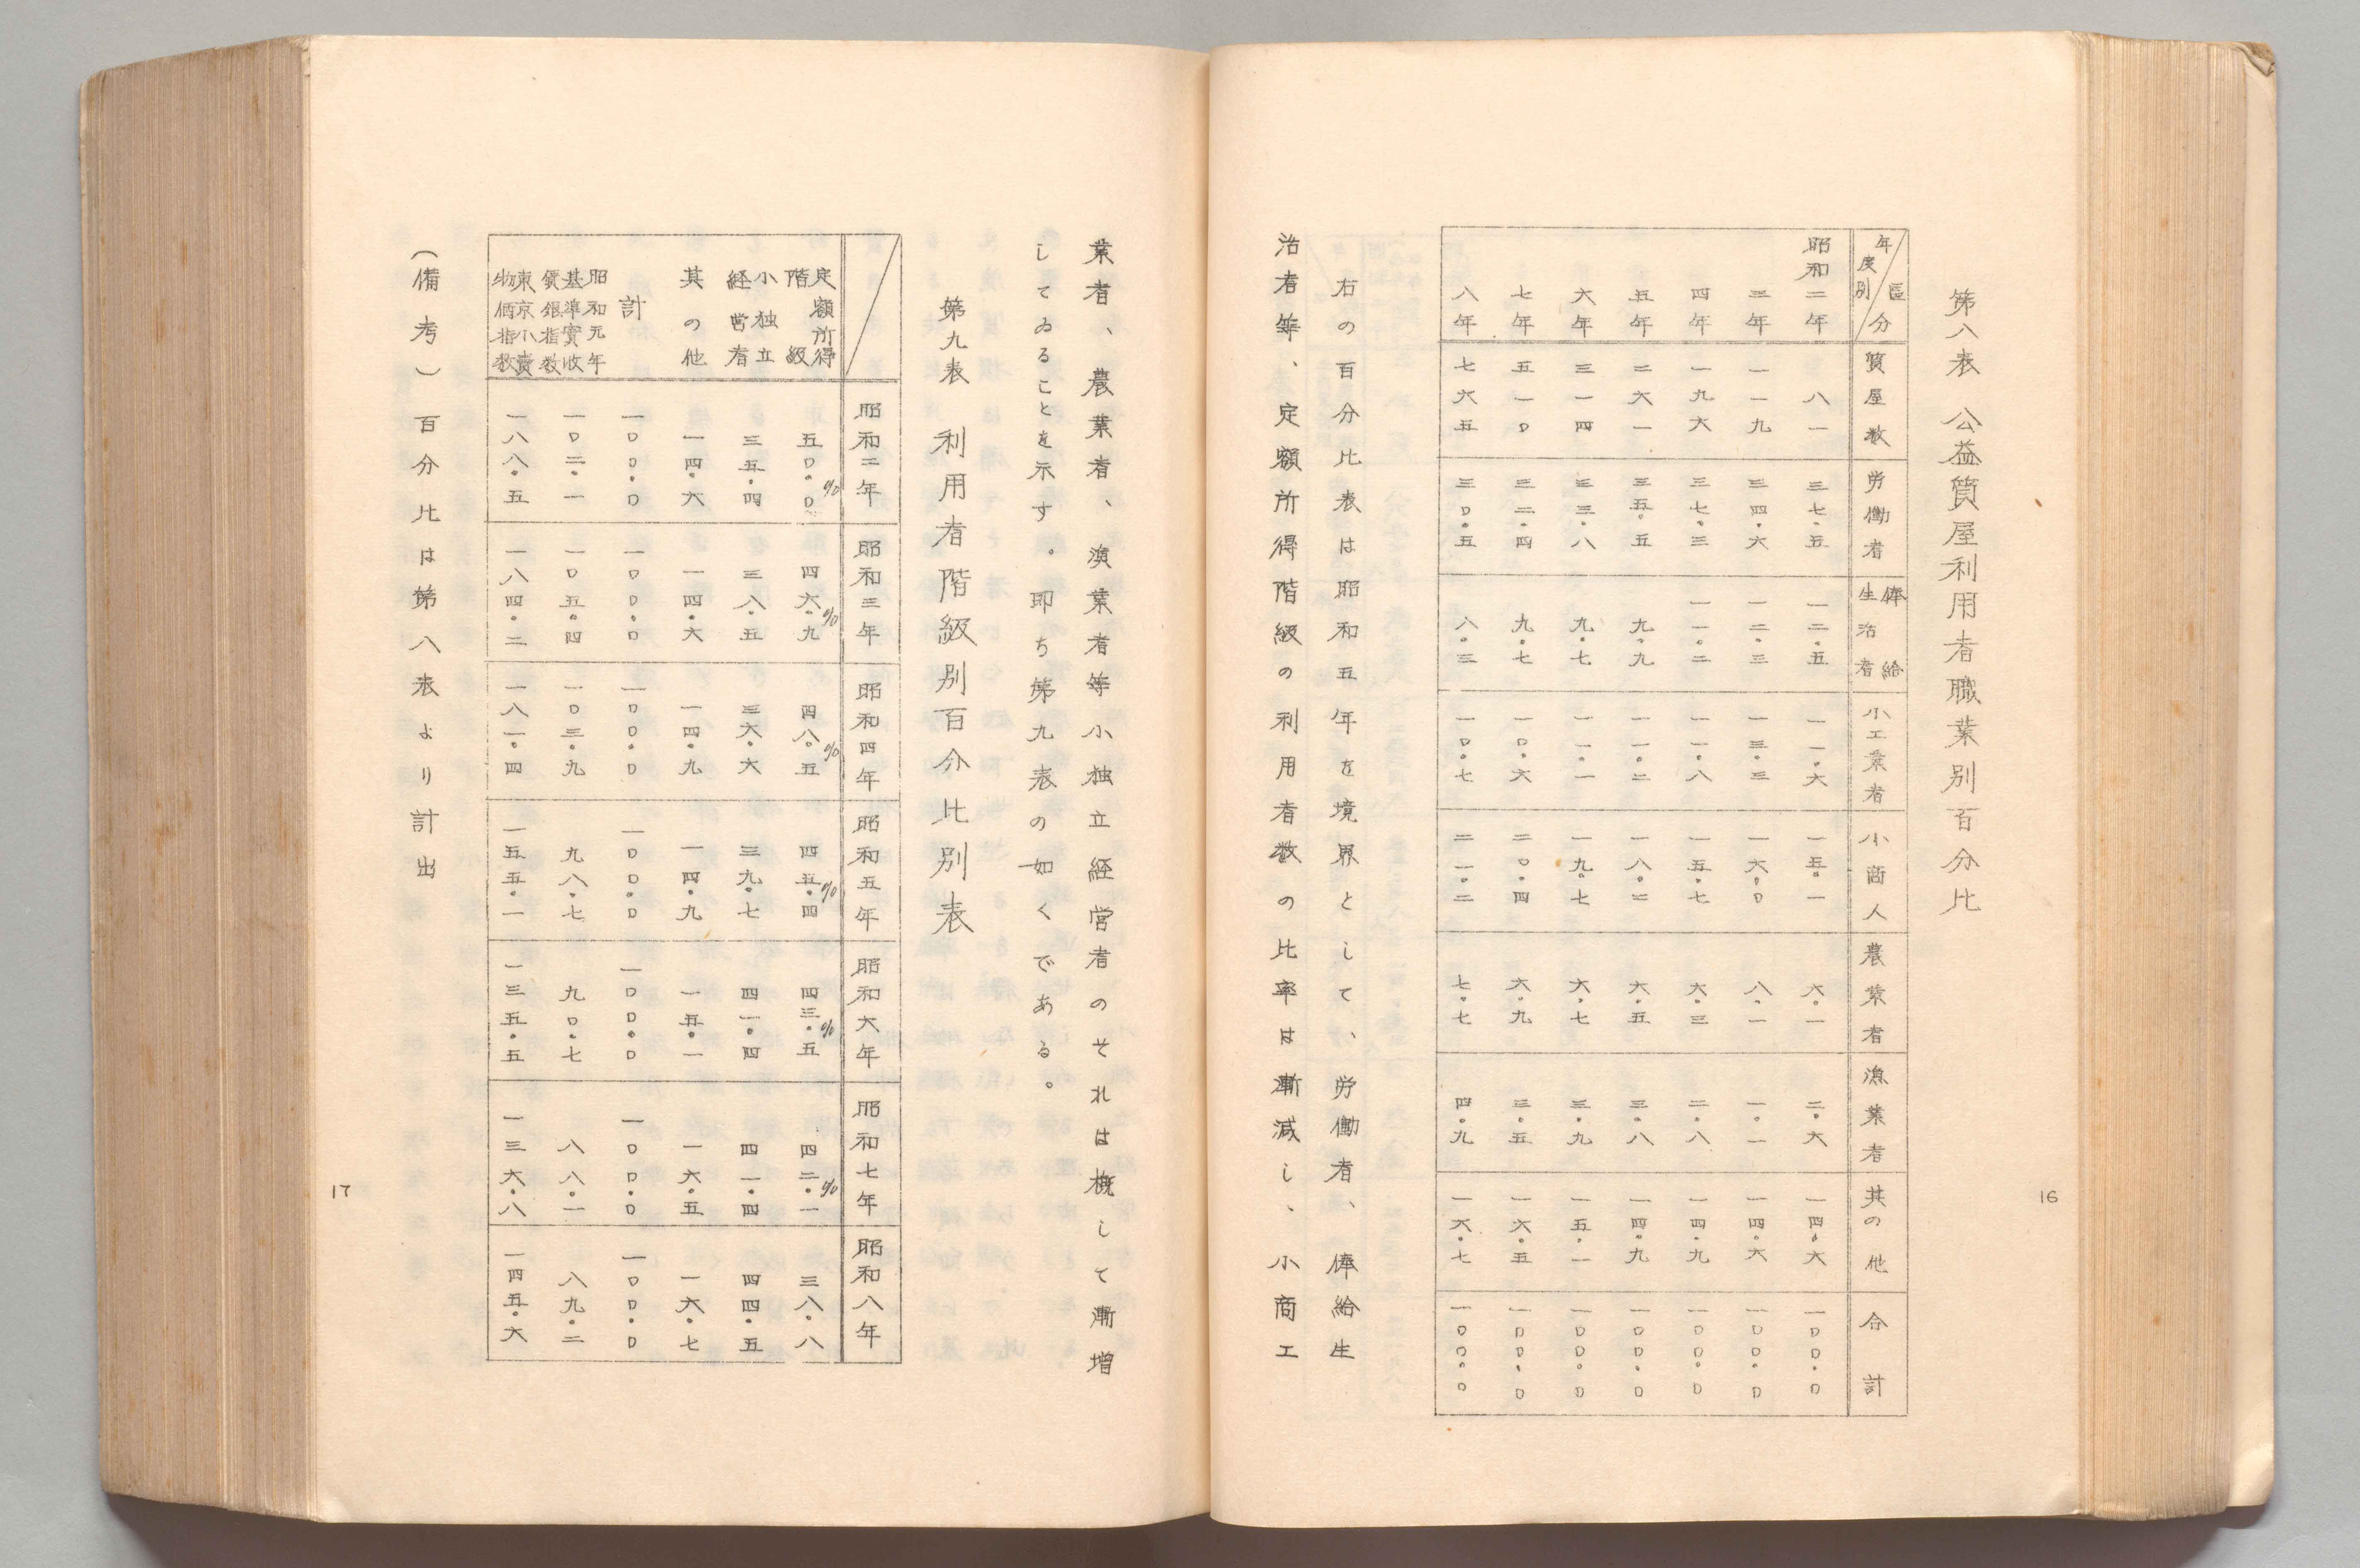 第八表 公益質屋利用者職業別百分比
年度別 區分 質屋数 労働者 俸給生治者 小工業者 小商人 農業者 漁業者 其の他 合計
昭和二年 八一 三七・五 一二・五 一一・六 一五・一 六・一 二・六 一四・六 一〇〇・〇
三年 一一九 三四・六 一二・三 一三・三 一六・〇 八・一 一・一 一四・六 一〇〇・〇
四年 一九六 三七・三 一一・二 一一・八 一五・七 六・三 二・八 一四・九 一〇〇・〇
五年 二六一 三五・五 九・九 一一・二 一八・二 六・五 三・八 一四・九 一〇〇・〇
六年 三一四 三三・八 九・七 一一・一 一九・七 六・七 三・九 一五・一 一〇〇・〇
七年 五一〇 三二・四 九・七 一〇・六 二〇・四 六・九 三・五 一六・五 一〇〇・〇
八年 七六五 三〇・五 八・三 一〇・七 二一・二 七・七 四・九 一六・七 一〇〇・〇
右の百分比表は昭和五年を境界として、労働者、俸給生
治者等、定額所得階級の利用者数の比率は漸減し、小商工
16
業者、農業者、漁業者等小独立経営者のそれは概して漸増
してゐることを示す。即ち第九表の如くである。
第九表 利用者階級別百分比別表
昭和二年 昭和三年 昭和四年 昭和五年 昭和六年 昭和七年 昭和八年
定額所得階級 五〇・〇% 四六・九% 四八・五% 四五・四% 四三・五% 四二・一% 三八・八
小独立経営者 三五・四 三八・五 三六・六 三九・七 四一・四 四一・四 四四・五
其の他 一四・六 一四・六 一四・九 一四・九 一五・一 一六・五 一六・七
計 一〇〇・〇 一〇〇・〇 一〇〇・〇 一〇〇・〇 一〇〇・〇 一〇〇・〇 一〇〇・〇
昭和元年基準實收賃銀指数 一〇二・一 一〇五・四 一〇三・九 九八・七 九〇・七 八八・一 八九・二
東京小賣物価指数 一八八・五 一八四・二 一八一・四 一五五・一 一三五・五 一三六・八 一四五・六
(備考) 百分比は第八表より計出
17